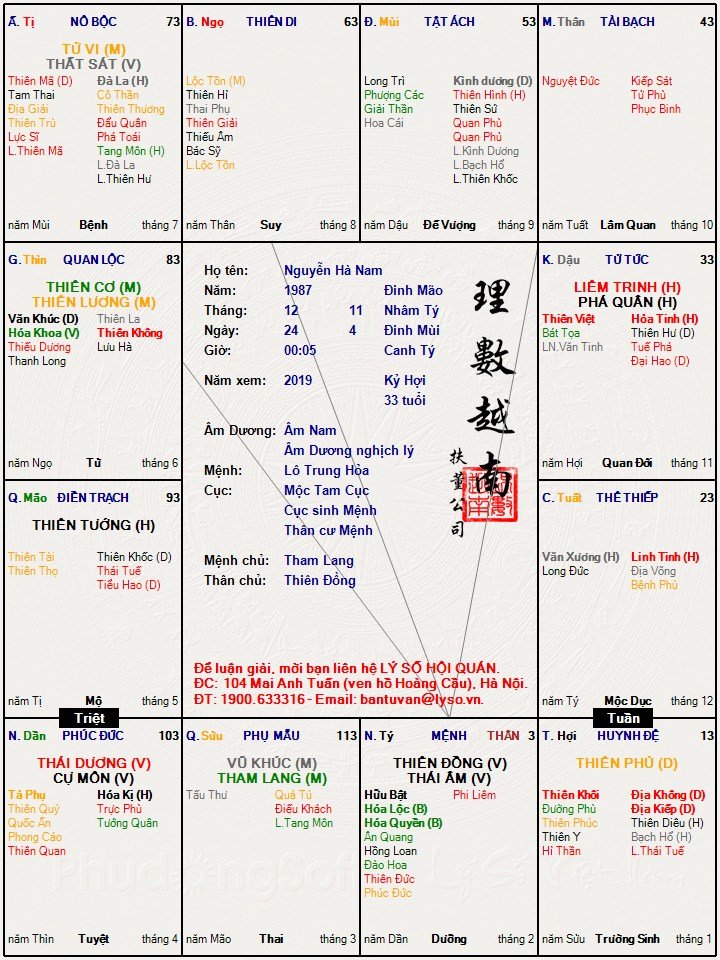 Ấ. Tị NÔ BỘC 73
TỬ VI (M)
THẤT SÁT (V)
Thiên Mã (D) Đà La (H)
Tam Thai Cô Thần
Địa Giải Thiên Thương
Thiên Trù Đẩu Quân
Lực Sĩ Phá Toái
L.Thiên Mã Tang Môn (H)
L.Đà La
L.Thiên Hư
năm Mùi Bệnh tháng 7
B. Ngọ THIÊN DI 63
Lộc Tồn (M)
Thiên Hỉ
Thai Phụ
Thiên Giải
Thiếu Âm
Bác Sỹ
L.Lộc Tồn
năm Thân Suy tháng 8
Đ. Mùi TẬT ÁCH 53
Long Trì Kình dương (D)
Phượng Các Thiên Hình (H)
Giải Thần Thiên Sứ
Hoa Cái Quan Phù
Quan Phủ
L.Kình Dương
L.Bạch Hổ
L.Thiên Khốc
năm Dậu Đế Vượng tháng 9
M. Thân TÀI BẠCH 43
Nguyệt Đức Kiếp Sát
Tử Phù
Phục Binh
năm Tuất Lâm Quan tháng 10
G. Thìn QUAN LỘC 83
THIÊN CƠ (M)
THIÊN LƯƠNG (M)
Văn Khúc (D) Thiên La
Hóa Khoa (V) Thiên Không
Thiếu Dương Lưu Hà
Thanh Long
năm Ngọ Tử tháng 6
Họ tên: Nguyễn Hà Nam
Năm: 1987 Đinh Mão
Tháng: 12 11 Nhâm Tý
Ngày: 24 4 Đinh Mùi
Giờ: 00:05 Canh Tý
Năm xem: 2019 Kỷ Hợi
33 tuổi
Âm Dương: Âm Nam
Âm Dương nghịch lý
Mệnh: Lô Trung Hỏa
Cục: Mộc Tam Cục
Cục sinh Mệnh
Thân cư Mệnh
Mệnh chủ: Tham Lang
Thân chủ: Thiên Đồng
理數越南
扶董公司
Để luận giải, mời bạn liên hệ LÝ SỐ HỘI QUÁN.
ĐC: 104 Mai Anh Tuấn (ven hồ Hoàng Cầu), Hà Nội.
ĐT: 1900.633316 - Email: bantuvan@lyso.vn.
K. Dậu TỬ TỨC 33
LIÊM TRINH (H)
PHÁ QUÂN (H)
Thiên Việt Hỏa Tinh (H)
Bát Tọa Thiên Hư (D)
LN.Văn Tinh Tuế Phá
Đại Hao (D)
năm Hợi Quan Đới tháng 11
Q. Mão ĐIỀN TRẠCH 93
THIÊN TƯỚNG (H)
Thiên Tài Thiên Khốc (D)
Thiên Thọ Thái Tuế
Tiểu Hao (D)
năm Tị Mộ tháng 5
C. Tuất THÊ THIẾP 23
Văn Xương (H) Linh Tinh (H)
Long Đức Địa Võng
Bệnh Phù
năm Tý Mộc Dục tháng 12
Triệt
Tuần
N. Dần PHÚC ĐỨC 103
THÁI DƯƠNG (V)
CỰ MÔN (V)
Tả Phụ Hóa Kị (H)
Thiên Quý Trực Phù
Quốc Ấn Tướng Quân
Phong Cáo
Thiên Quan
năm Thìn Tuyệt tháng 4
Q. Sửu PHỤ MẪU 113
VŨ KHÚC (M)
THAM LANG (M)
Tấu Thư Quả Tú
Điếu Khách
L.Tang Môn
năm Mão Thai tháng 3
N. Tý MỆNH THÂN 3
THIÊN ĐỒNG (V)
THÁI ÂM (V)
Hữu Bật Phi Liêm
Hóa Lộc (B)
Hóa Quyền (B)
Ân Quang
Hồng Loan
Đào Hoa
Thiên Đức
Phúc Đức
năm Dần Dưỡng tháng 2
T. Hợi HUYNH ĐỆ 13
THIÊN PHỦ (D)
Thiên Khôi Địa Không (D)
Đường Phù Địa Kiếp (D)
Thiên Phúc Thiên Diêu (H)
Thiên Y Bạch Hổ (H)
Hỉ Thần L.Thái Tuế
năm Sửu Trường Sinh tháng 1